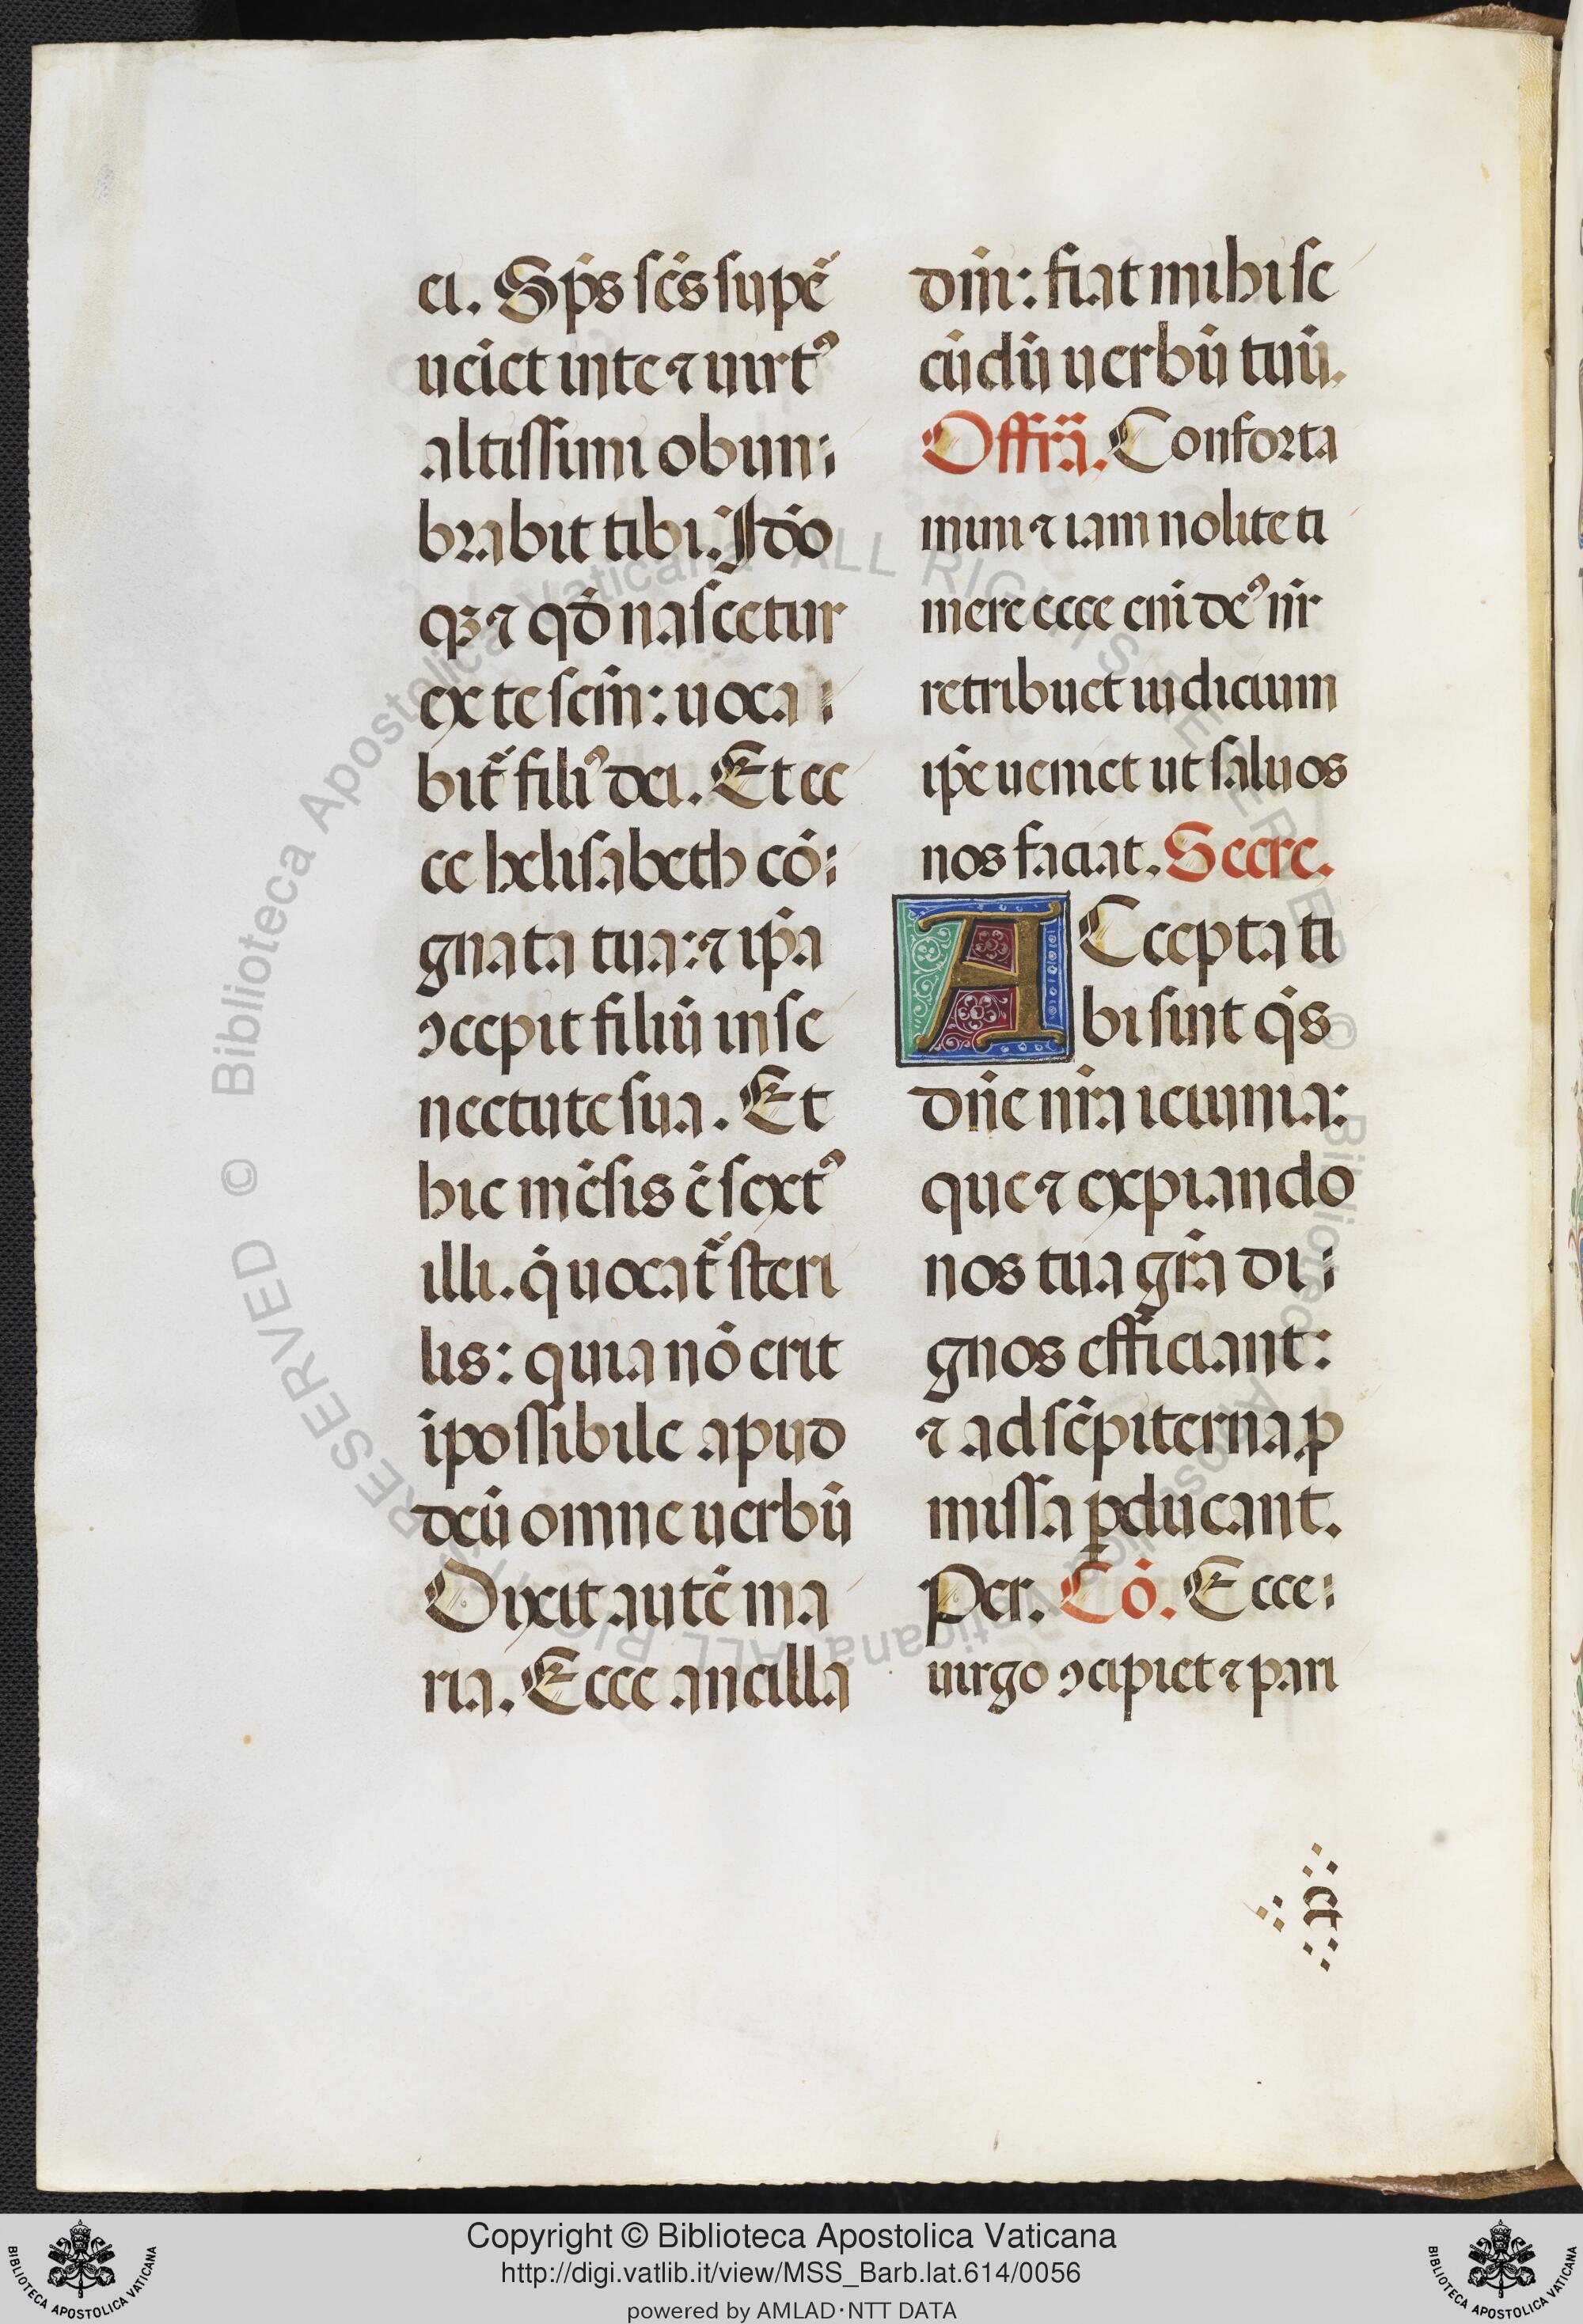 ei. Sp̄s sc̄s supē
ueiet in te ⁊ uirtꝰ
altissimi obum
brabit tibi. Ideo
qꝫ ⁊ qđ nascetur
ex te scm̄: uoca
bit᷑ filiꝰ dei. Et ec
ce helisabeth co
gnata tua: ⁊ ip̄a
ↄcepit filiū in se
nectute sua. Et
hic mēsis ē sextꝰ
illi. q̇ uocat᷑ steri
lis: quia nō erit
īpossibile apud
deū omne uerbū
Dixit autē ma
ria. Ecce ancilla
dn̄i: fiat mihi se
cūdū uerbū tuū.
Offr̄a. Conforta
mini ⁊ iam nolite ti
mere ecce eni deꝰ nr̄
retribuet iudicium
ip̄e ueniet ut saluos
nos faciat. Secre.
ACcepta ti
bi sint q̄s
dn̄e nr̄a ieiunia:
que ⁊ expiando
nos tua gr̄a di
gnos efficiant:
⁊ ad sēpiterna ꝓ
missa ꝑducant.
Per. Cō. Ecce
uirgo ↄcipiet ⁊ pari
et
© Biblioteca Apostolica Vaticana ALL RIGHTS RESERVED
© Biblioteca Apostolica Vaticana ALL RIGHTS RESERVED
Copyright © Biblioteca Apostolica Vaticana
http://digi.vatlib.it/view/MSS_Barb.lat.614/0056
powered by AMLAD·NTT DATA
BIBLIOTECA APOSTOLICA VATICANA
BIBLIOTECA APOSTOLICA VATICANA